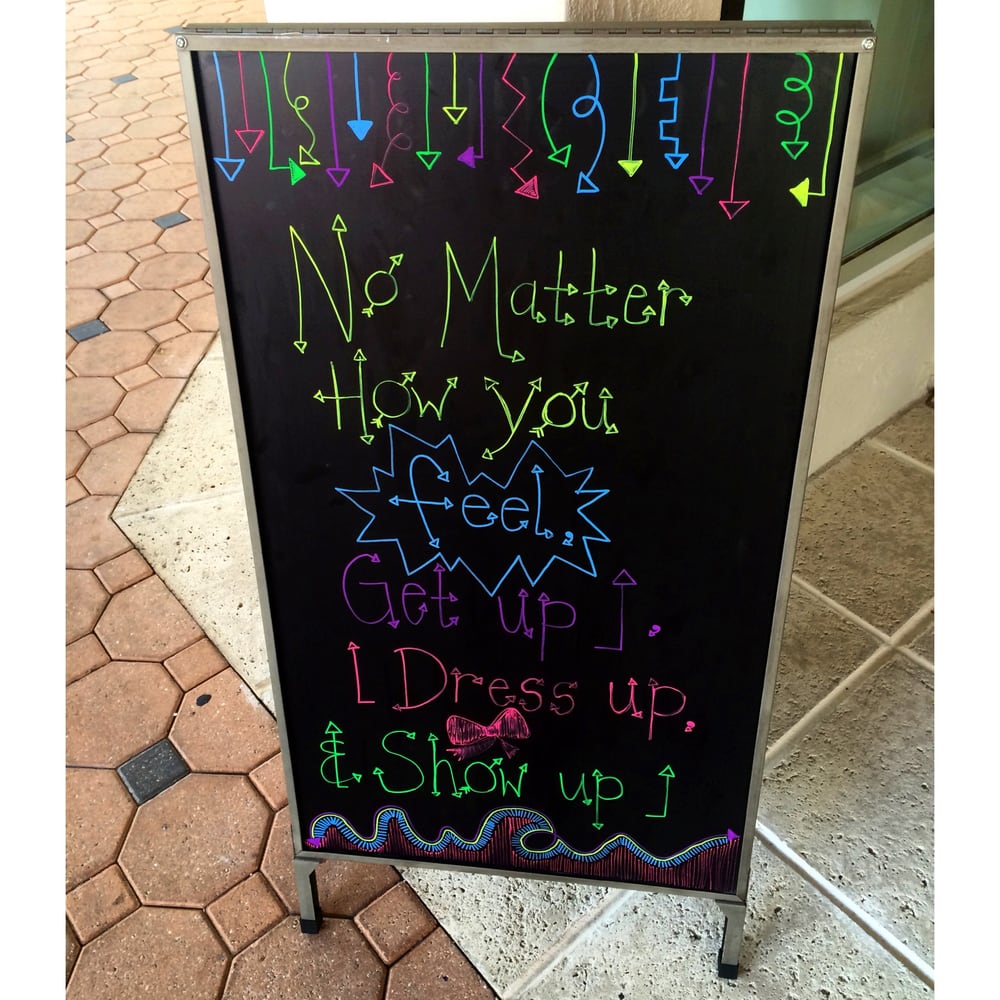 No Matter
How you
feel,
Get up,
Dress up,
& Show up